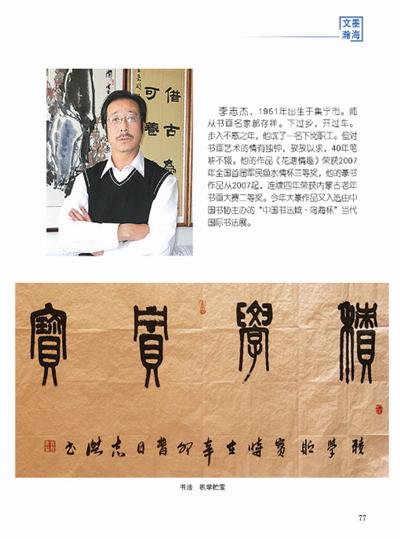 文墨
瀚海
借古為
可善
李志杰，1951年出生于集宁市。师
从书画名家郝存祥。下过乡，开过车。
步入不惑之年，他成了一名下岗职工。但对
书画艺术的情有独钟，孜孜以求，40年笔
耕不辍。他的作品《花溏情趣》荣获2007
年全国首届军民鱼水情杯三等奖，他的篆书
作品从2007起，连续四年荣获内蒙古老年
书画大赛二等奖。今年大篆作品又入选由中
国书协主办的“中国书法城·乌海杯”当代
国际书法展。
積學貯寶
積學貯寶時在辛卯
书法 积学贮宝
77